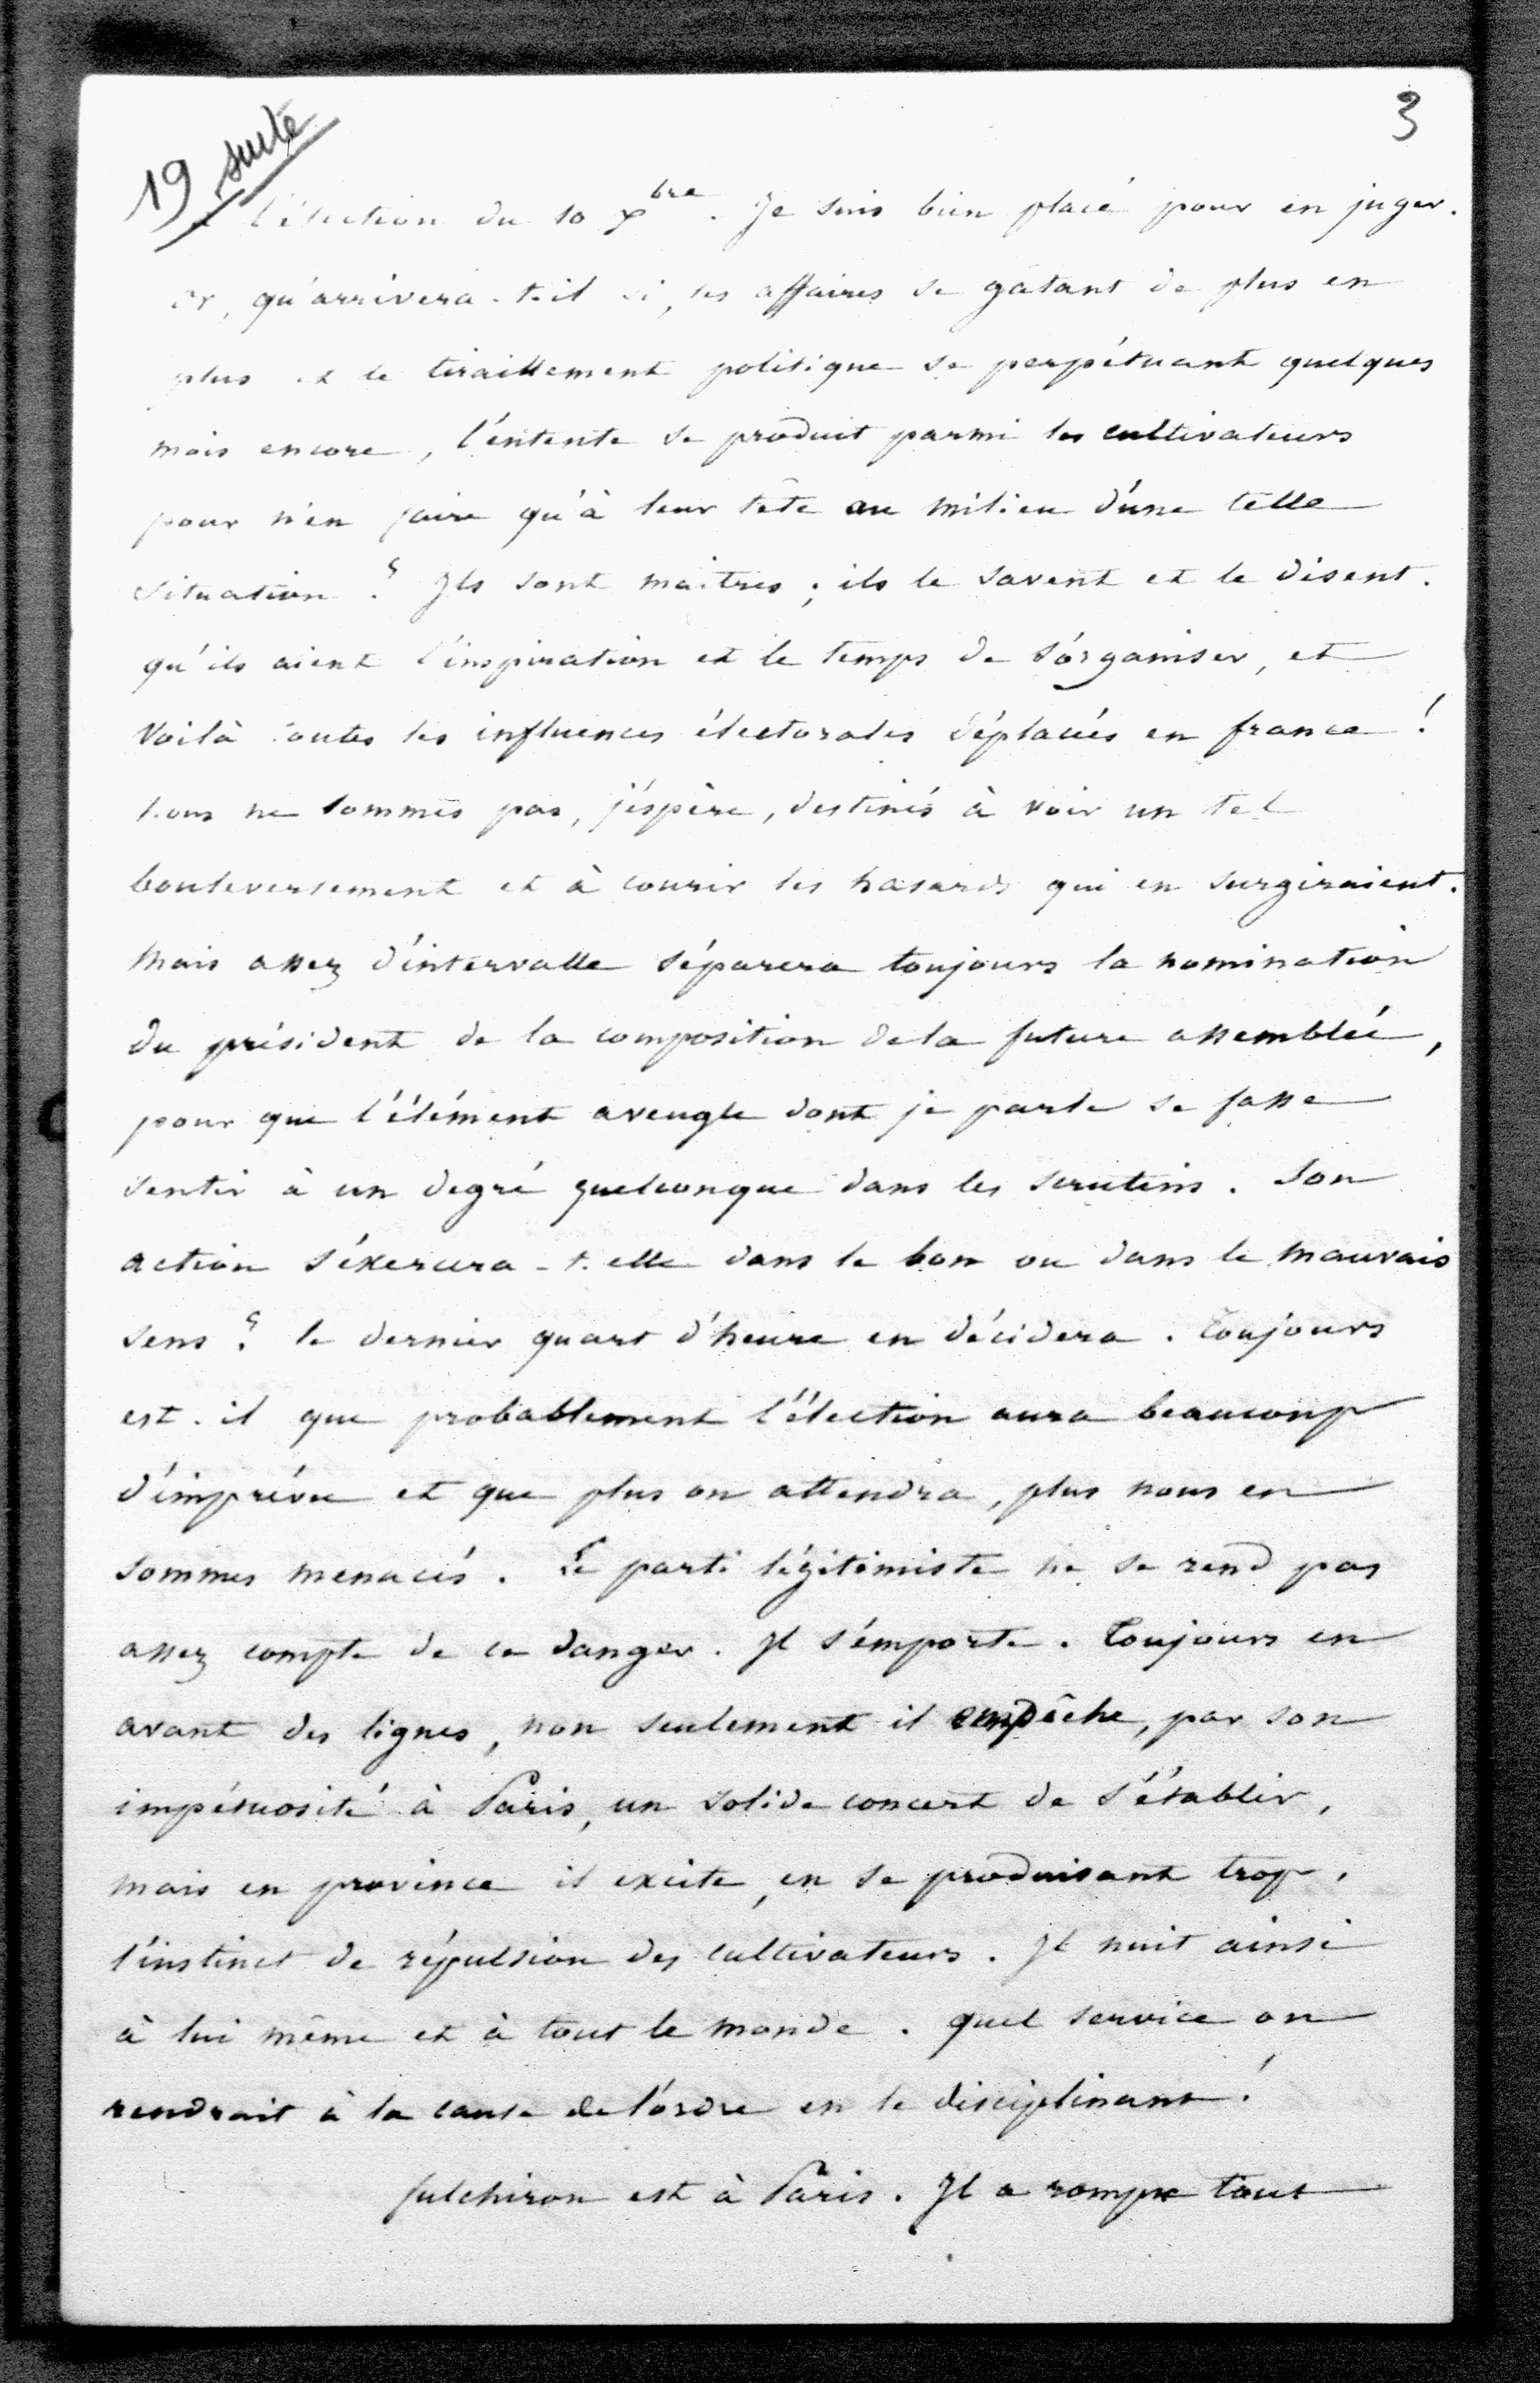 3
19 suite
l'élection du 10 Xbre. Je suis bien placé pour en juger.
or, qu'arrivera-t-il si, les affaires se gâtant de plus en
plus et le tiraillement politique se perpétuant quelques
mois encore, l'entente se produit parmi les cultivateurs
pour n'en faire qu'à leur tête au milieu d'une telle
situation ? Ils sont maitres ; ils le savent et le disent.
qu'ils aient l'inspiration et le temps de s'organiser, et
voilà toutes les influences électorales déplacées en france !
Nous ne sommes pas, j'éspère, destinés à voir un tel
bouleversement et à courir les hasards qui en surgiraient.
Mais assez d'intervalle séparera toujours la nomination
du président de la composition de la future assemblée,
pour que l'élément aveugle dont je parle se fasse
sentir à un degré quelconque dans les scrutins. Son
action s'éxercera-t-elle dans le bon ou dans le mauvais
sens ? le dernier quart d'heure en décidera. Toujours
est-il que probablement l'élection aura beaucoup
d'imprévu et que plus on attendra, plus nous en
sommes menacés. Le parti légitimiste ne se rend pas
assez compte de ce danger. Il s'emporte. Toujours en
avant des lignes, non seulement il empêche, par son
impétuosité à Paris, un solide concert de s'établir,
mais en province il excite, en se produisant trop,
l'instinct de répulsion des cultivateurs. Il nuit ainsi
à lui même et à tout le monde. quel service on
rendrait à la cause de l'ordre en le disciplinant !
fulchiron est à Paris. Il a rompu tout